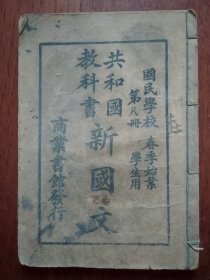 國民學校 春季始業
第八冊 學生用
共和國
教科書
新國文
商業書館發行